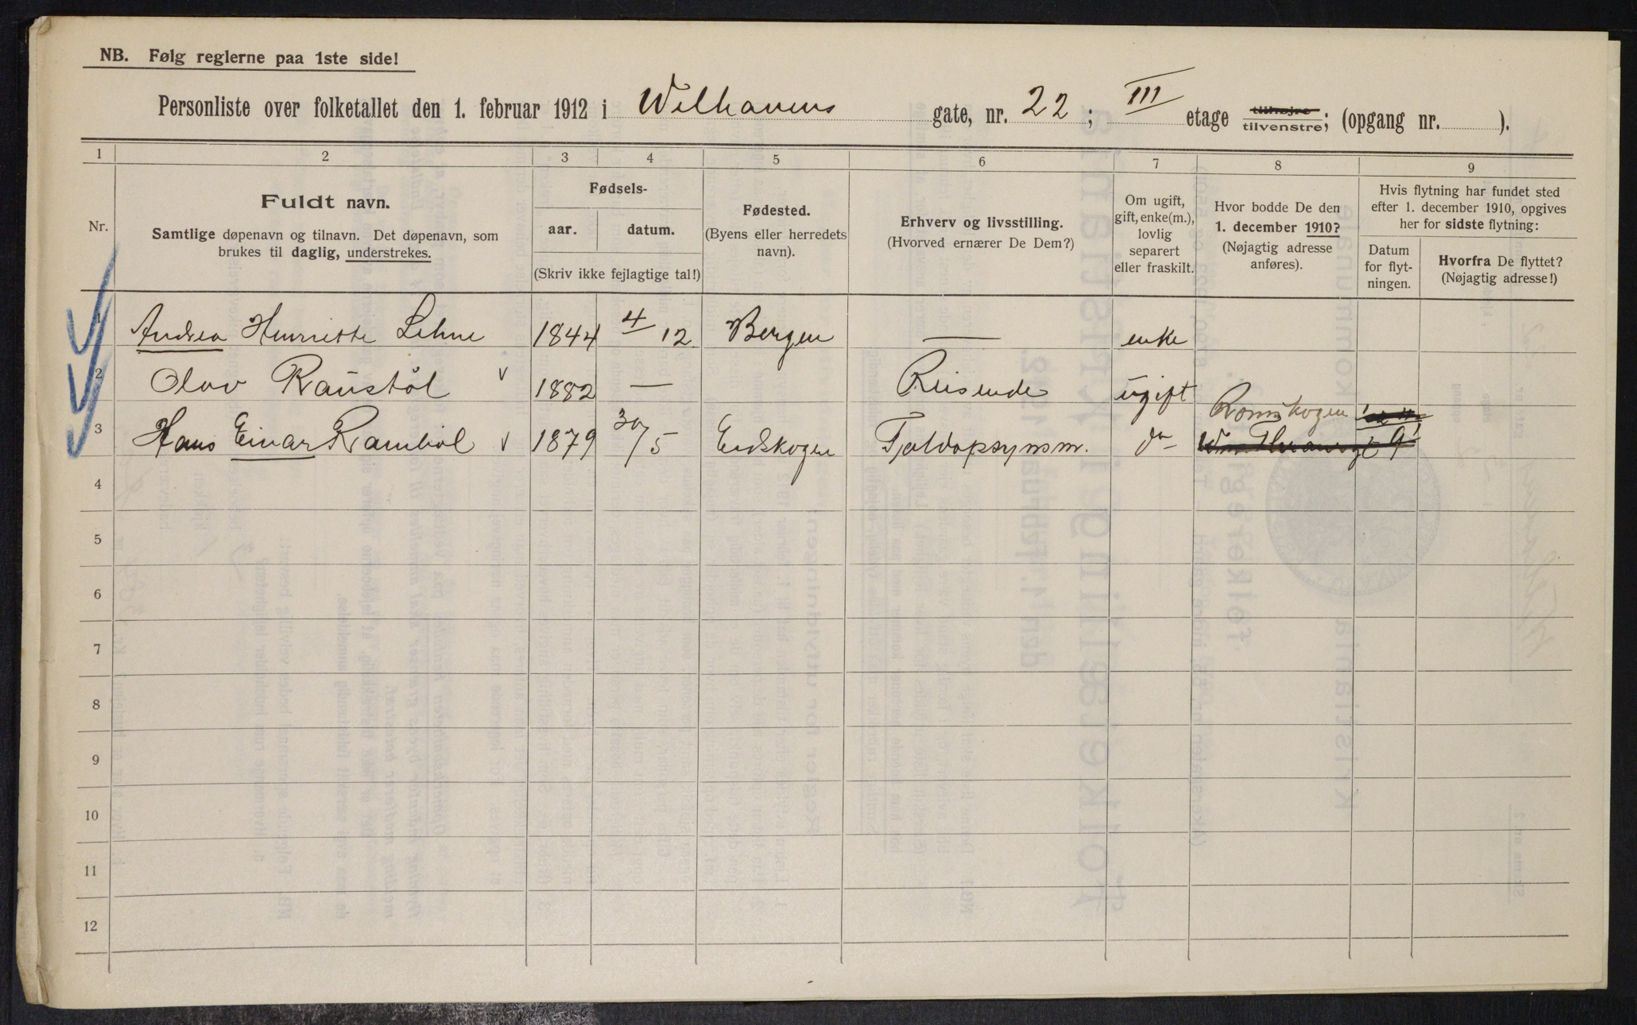 NB. Følg reglerne paa 1ste side!
Personliste over folketallet den 1. februar 1912 i Welhavens gate, nr. 22; III etage tilhøjre tilvenstre; (opgang nr. ).
1 2 3 4 5 6 7 8 9
Nr.
Fuldt navn.
Samtlige døpenavn og tilnavn. Det døpenavn, som
brukes til daglig, understrekes.
Fødsels-
aar. datum.
(Skriv ikke fejlagtige tal!)
Fødested.
(Byens eller herredets
navn).
Erhverv og livsstilling.
(Hvorved ernærer De Dem?)
Om ugift,
gift, enke(m.),
lovlig
separert
eller fraskilt.
Hvor bodde De den
1. december 1910?
(Nøjagtig adresse
anføres).
Hvis flytning har fundet sted
efter 1. december 1910, opgives
her for sidste flytning:
Datum
for flyt-
ningen.
Hvorfra De flyttet?
(Nøjagtig adresse!)
1 Andrea Henriette Lehne 1844 4/12 Bergen — enke
2 Olav Raustöl v 1882 — Reisende ugift
3 Hans Einar Ramböl v 1879 30/5 Eidskogen do Romskogen
4
5
6
7
8
9
10
11
12